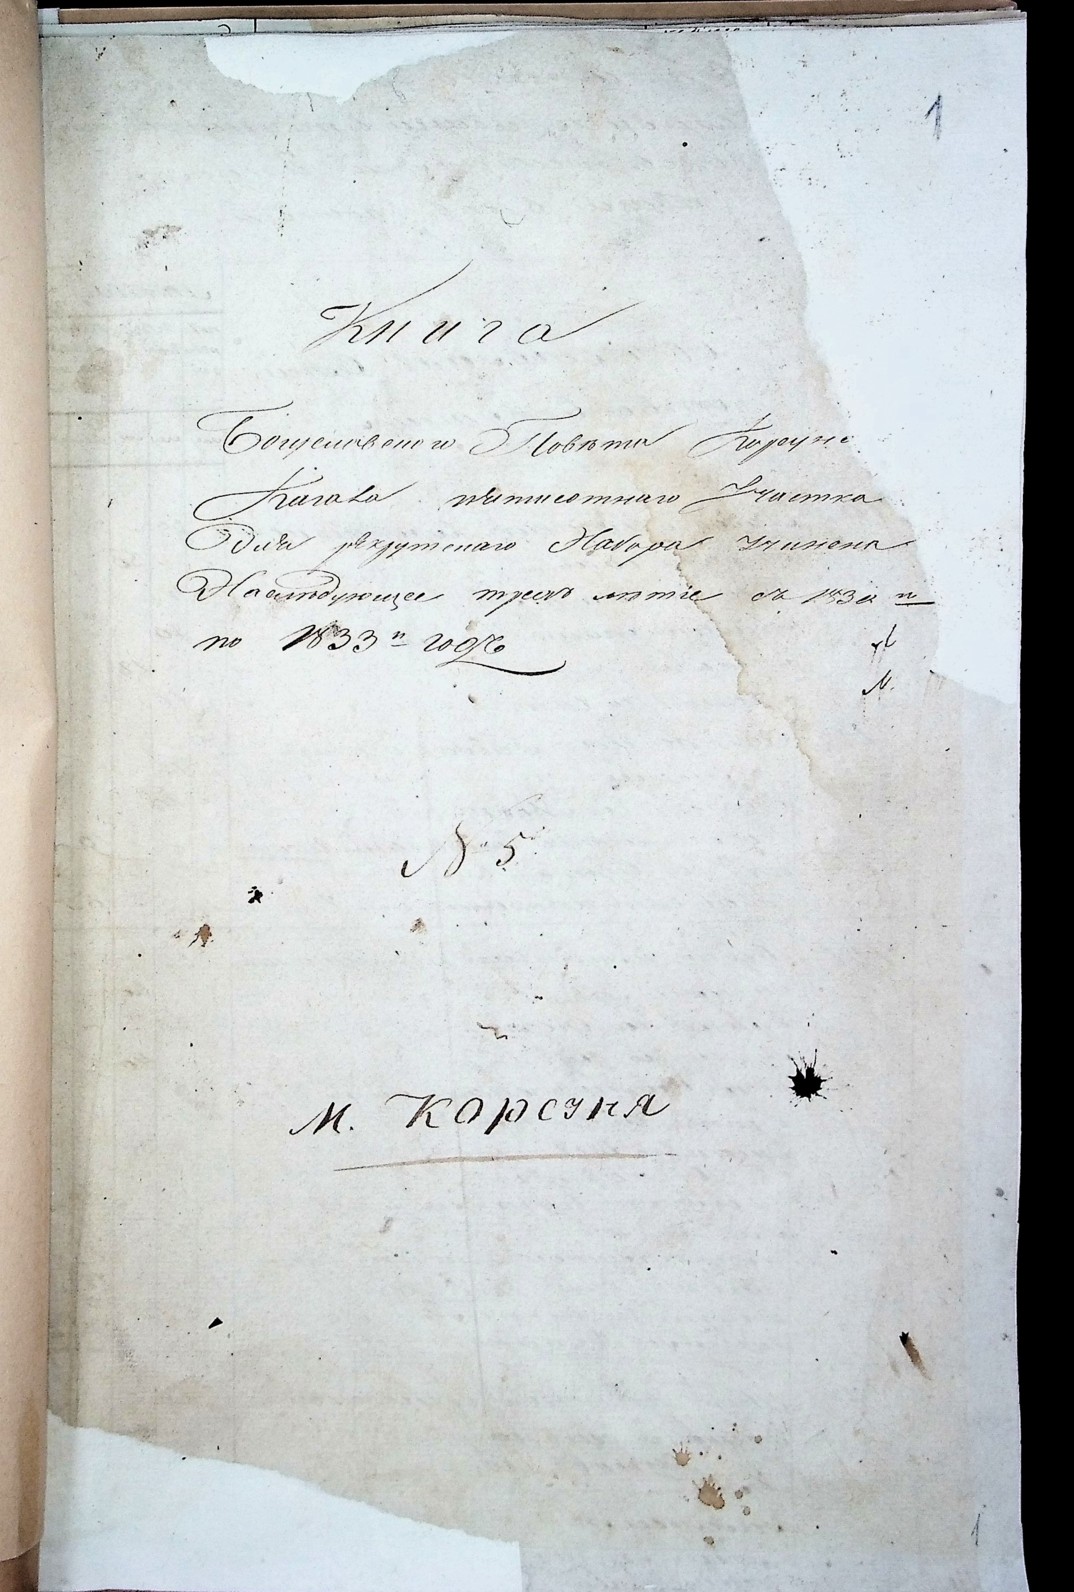 1
Книга
Богуславского Повѣта Корсунс
Кагала пятисотнаго Участка
Для рекрутскаго Набора учинена
На слѣдующее трехъ лѣтіе съ 1830 го
по 1833 й годъ
№ 5
м. Корсуня
1